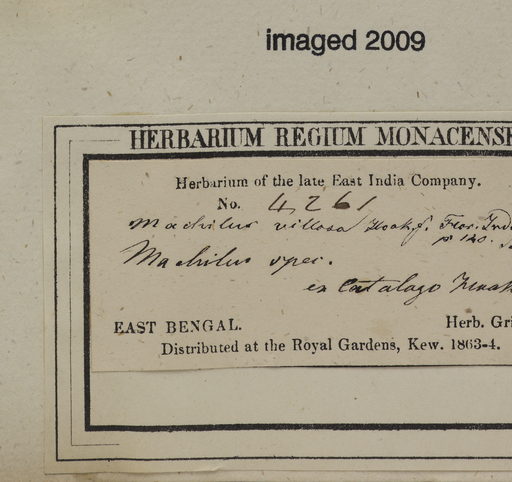 imaged 2009
HERBARIUM REGIUM MONACENS
Herbarium of the late East India Company.
No. 4261
Machilus villosa Hook. f. Flor. Ind
p 140.
Machilus spec.
ex Catalogo
EAST BENGAL. Herb. Gri
Distributed at the Royal Gardens, Kew. 1863-4.